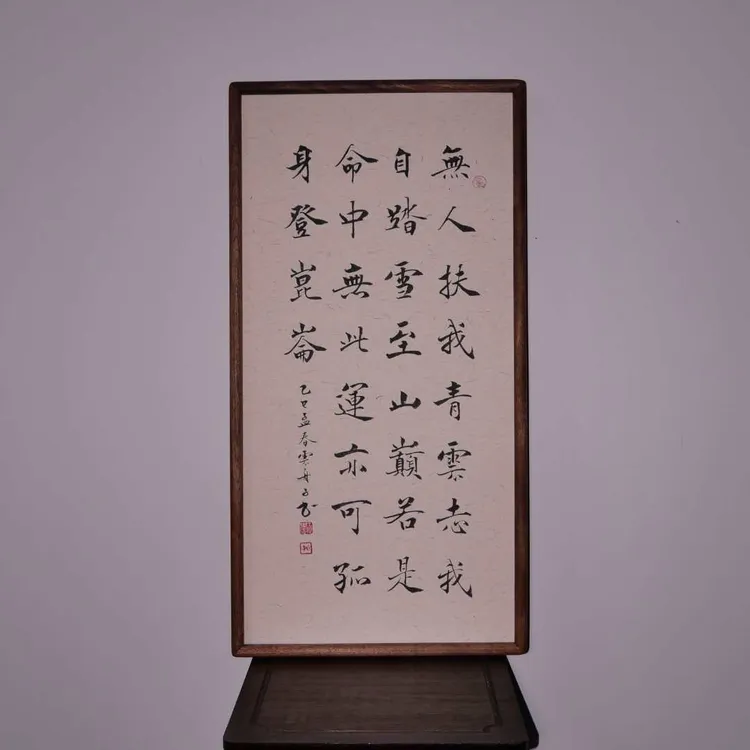 無人扶我青雲志我
自踏雪至山巔若是
命中無此運亦可孤
身登崑崙
乙巳孟春雲舟子書